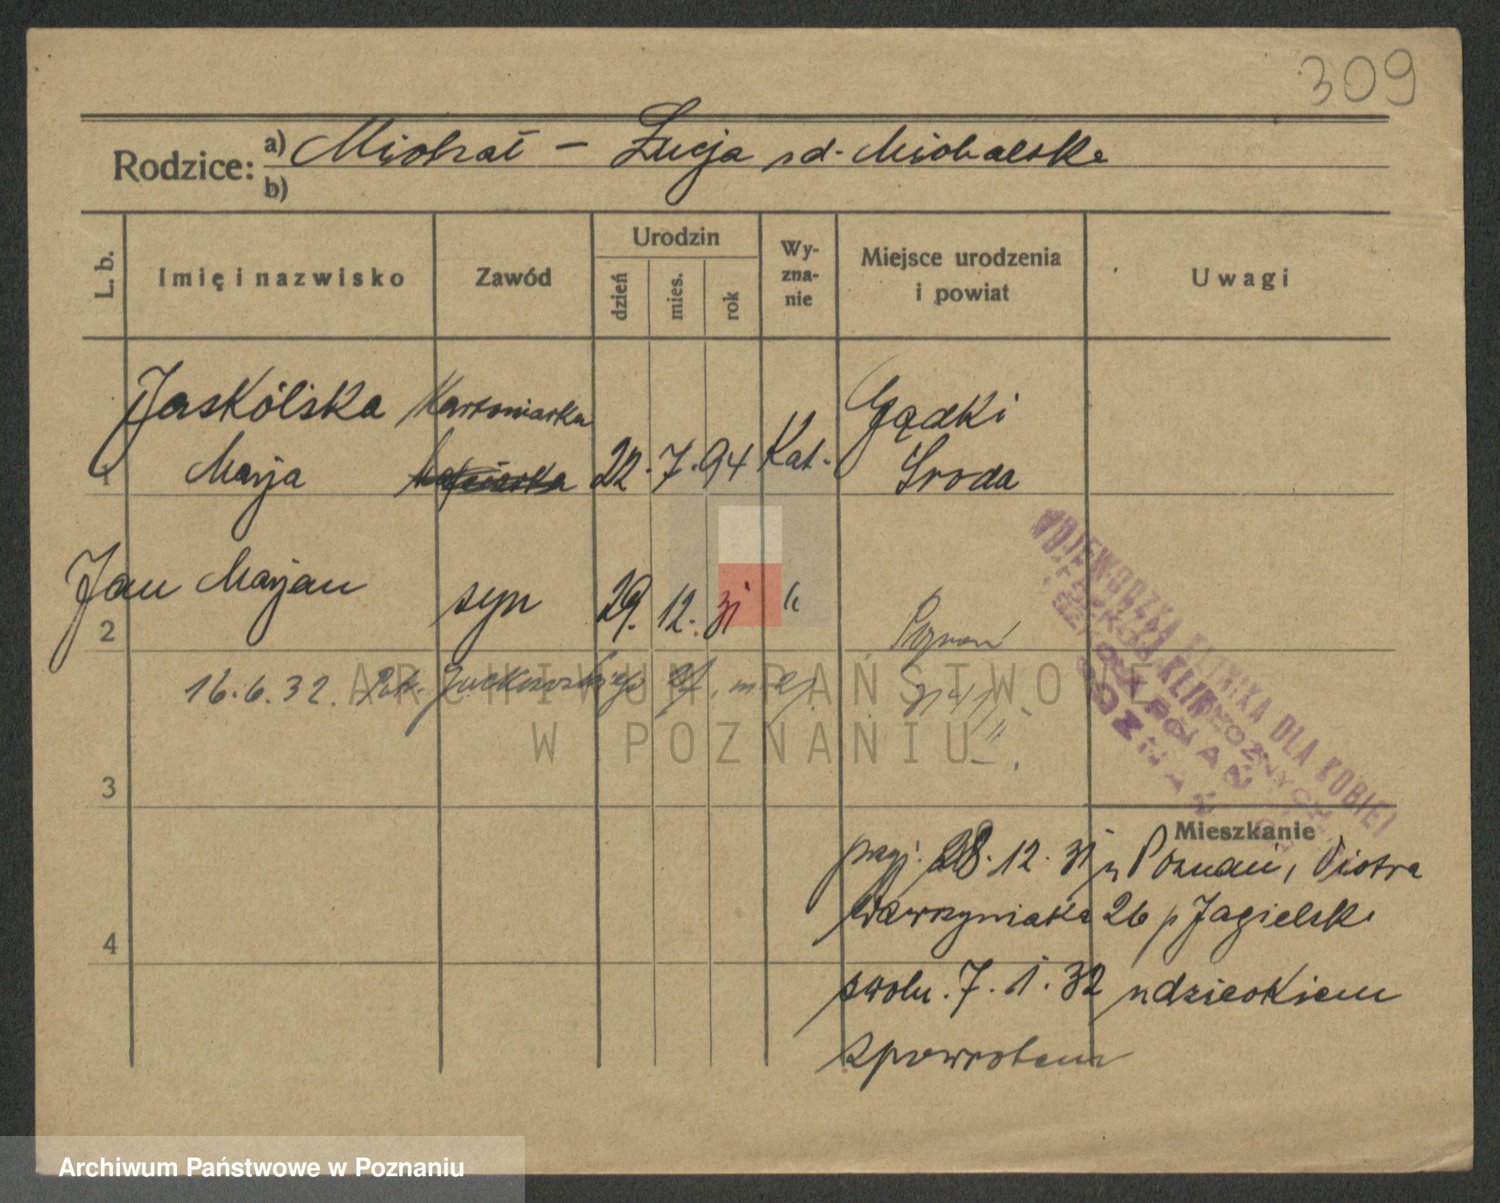 309
Rodzice: a) Michał – Łucja zd. Michalska
b)
L. b.
Imię i nazwisko
Zawód
Urodzin
dzień
mies.
rok
Wy-
zna-
nie
Miejsce urodzenia
i powiat
Uwagi
Jaskólska
Marja
1
22. 7. 94
Kat.
Gądki
Środa
Jan Marjan
syn
29. 12. 31
Poznań
2
16.6.32.
3
WOJEWÓDZKA KLINIKA DLA KOBIET
Mieszkanie
przyj. 28. 12. 31 z Poznań, Piotra
Wawrzyniaka 26 p Jagielski
4
zwoln. 7. 1. 32 z dzieckiem
zpowrotem
ARCHIWUM PAŃSTWOWE
W POZNANIU
Archiwum Państwowe w Poznaniu